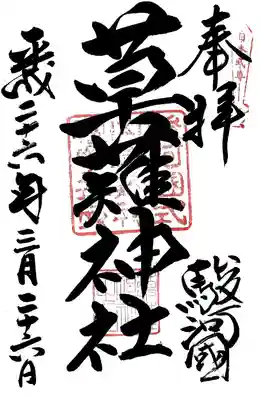 奉拝
駿河國
草薙神社
平成二十六年三月二十六日